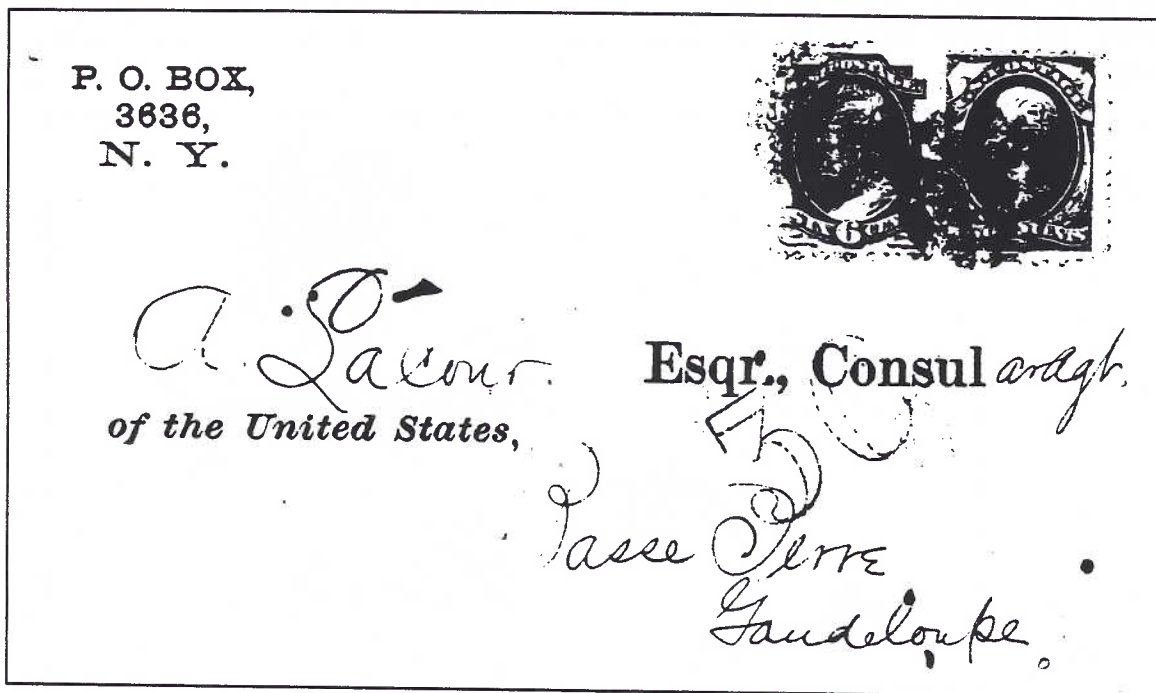 P. O. BOX,
3636,
N. Y.
6
A. Lacour. Esqr., Consul
of the United States,
Basse Terre
Gaudeloupe.